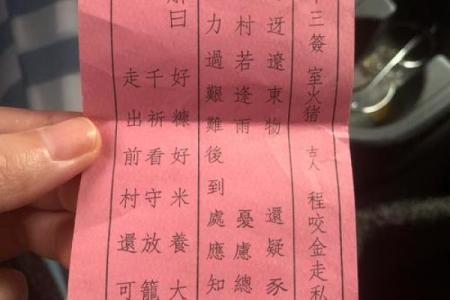 三簽 室火猪 古人 程咬金走私
迓遼東物 還疑豕
村若逢雨 憂慮總
力過艱難後到處應知
曰
好糠好米養大
千祈看守放籠
走出前村還可